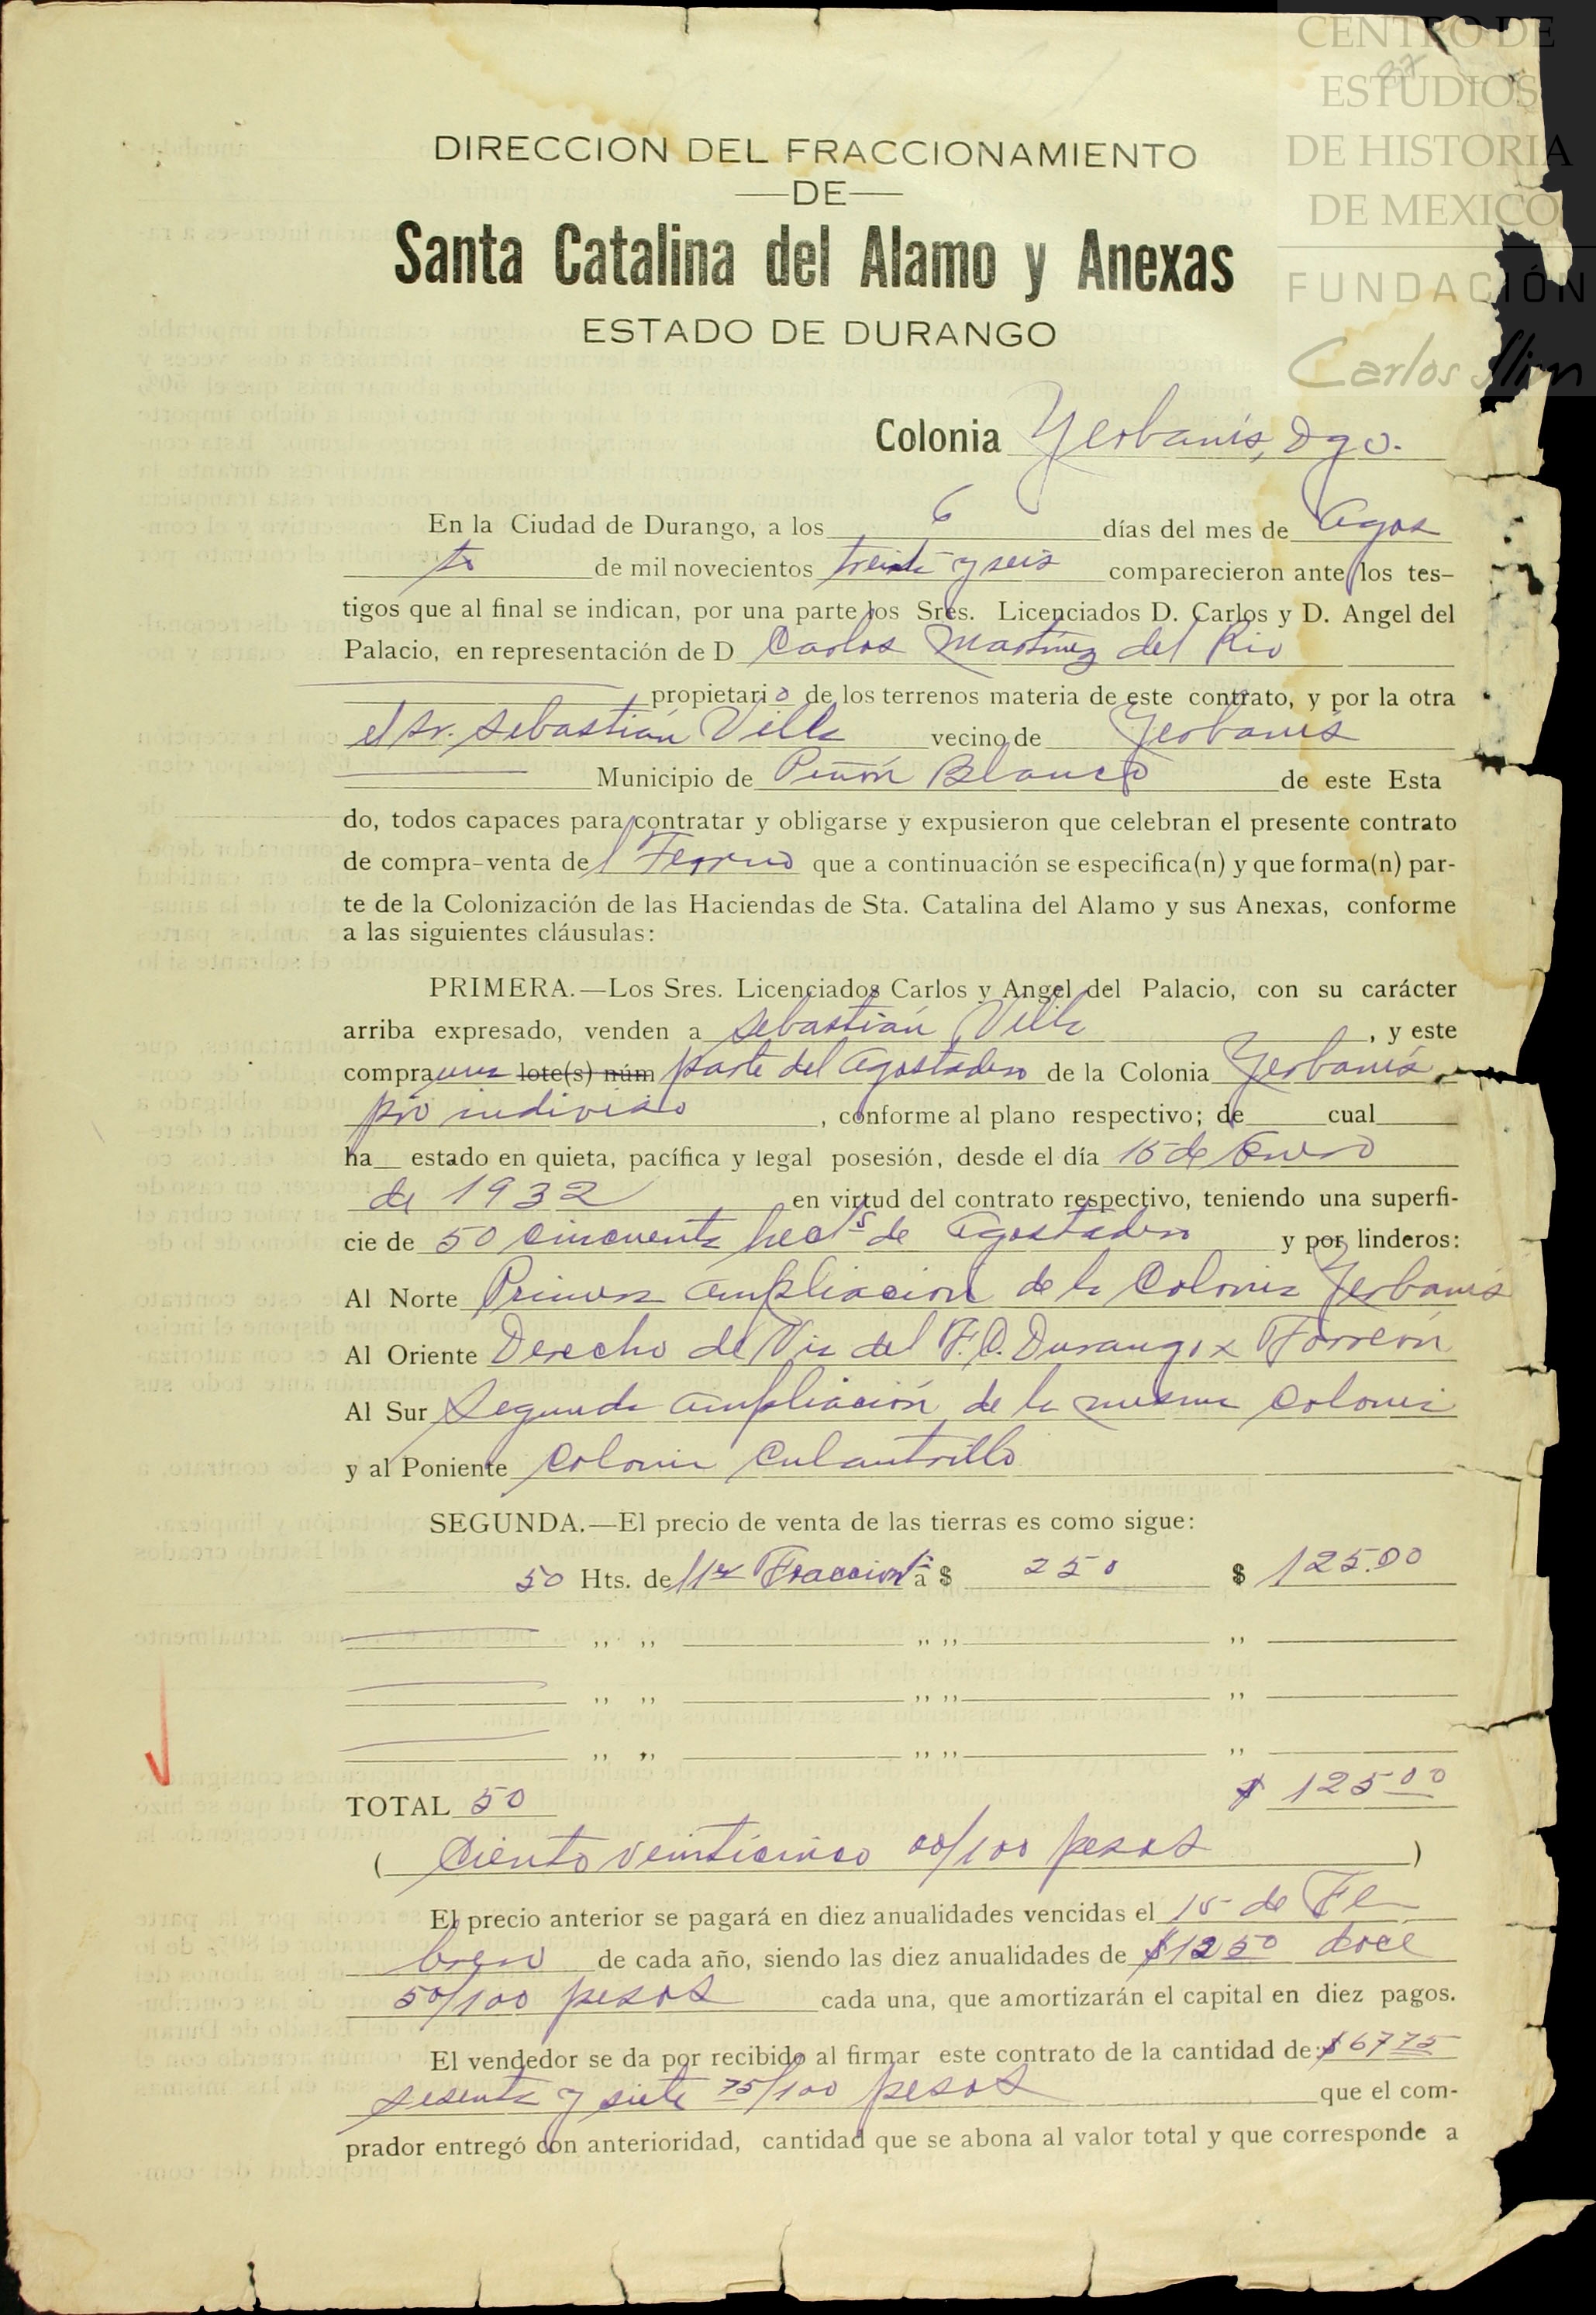 CENTRO DE
ESTUDIOS
DE HISTORIA
DE MEXICO
FUNDACIÓN
Carlos Slim
DIRECCION DEL FRACCIONAMIENTO
—DE—
Santa Catalina del Alamo y Anexas
ESTADO DE DURANGO
Colonia Yerbanís, Dgo.
En la Ciudad de Durango, a los 6 días del mes de Agos
to de mil novecientos treinta y seis comparecieron ante los tes-
tigos que al final se indican, por una parte los Sres. Licenciados D. Carlos y D. Angel del
Palacio, en representación de D Carlos Martínez del Rio
propietario de los terrenos materia de este contrato, y por la otra
el Sr. Sebastián Villa vecino de Yerbanís
Municipio de Peñón Blanco de este Esta
do, todos capaces para contratar y obligarse y expusieron que celebran el presente contrato
de compra-venta del Terreno que a continuación se especifica(n) y que forma(n) par-
te de la Colonización de las Haciendas de Sta. Catalina del Alamo y sus Anexas, conforme
a las siguientes cláusulas:
PRIMERA.—Los Sres. Licenciados Carlos y Angel del Palacio, con su carácter
arriba expresado, venden a Sebastián Villa, y este
compra una lote(s) núm parte del Agostadero de la Colonia Yerbanís
pro indiviso, conforme al plano respectivo; de cual
ha estado en quieta, pacífica y legal posesión, desde el día 15 de Enero
de 1932 en virtud del contrato respectivo, teniendo una superfi-
cie de 50 cincuenta hects de Agostadero y por linderos:
Al Norte Primera ampliación de la Colonia Yerbanís
Al Oriente Derecho de Via del F.C. Durango x Torreón
Al Sur Segunda ampliación de la misma Colonia
y al Poniente Colonia Culantrillo
SEGUNDA.—El precio de venta de las tierras es como sigue:
50 Hts. de 11a Fracción a $ 250 $ 125.00
,, ,, ,, ,, ,,
,, ,, ,, ,, ,,
,, ,, ,, ,, ,,
TOTAL 50 $ 125 00
( Ciento veinticinco 00/100 pesos )
El precio anterior se pagará en diez anualidades vencidas el 15 de Fe
brero de cada año, siendo las diez anualidades de $12 50 doce
50/100 pesos cada una, que amortizarán el capital en diez pagos.
El vendedor se da por recibido al firmar este contrato de la cantidad de: $67 75
sesenta y siete 75/100 pesos que el com-
prador entregó con anterioridad, cantidad que se abona al valor total y que corresponde a